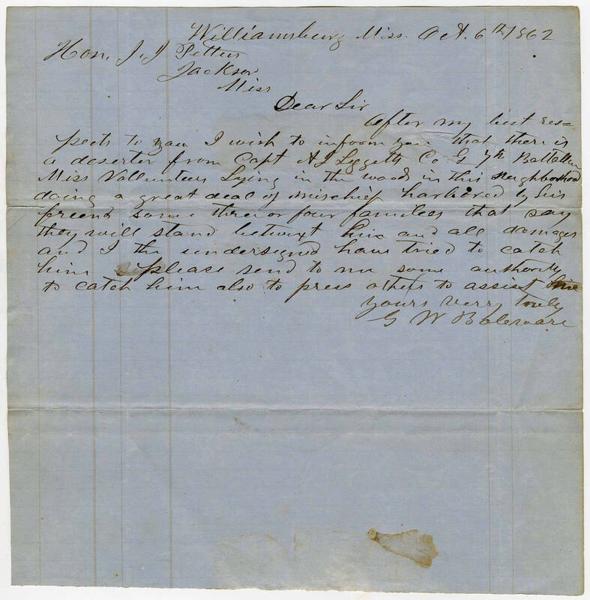 Williamsburg Miss. Oct. 6th 1862
Hon. J. J. Pettus
Jackson
Miss
Dear Sir
After my best res=
pects to you I wish to inform you that there is
a deserter from Capt A J Liggett Co G 7th Battalion
Miss Vollunteers Lying in the woods in this Neighborhood
doing a great deal of mischief harbored by his
friends some three or four families that say
they will stand betwixt him and all damages
and I the undersigned have tried to catch
him please send to me some authority
to catch him also to press others to assist me
yours verry truly
G W